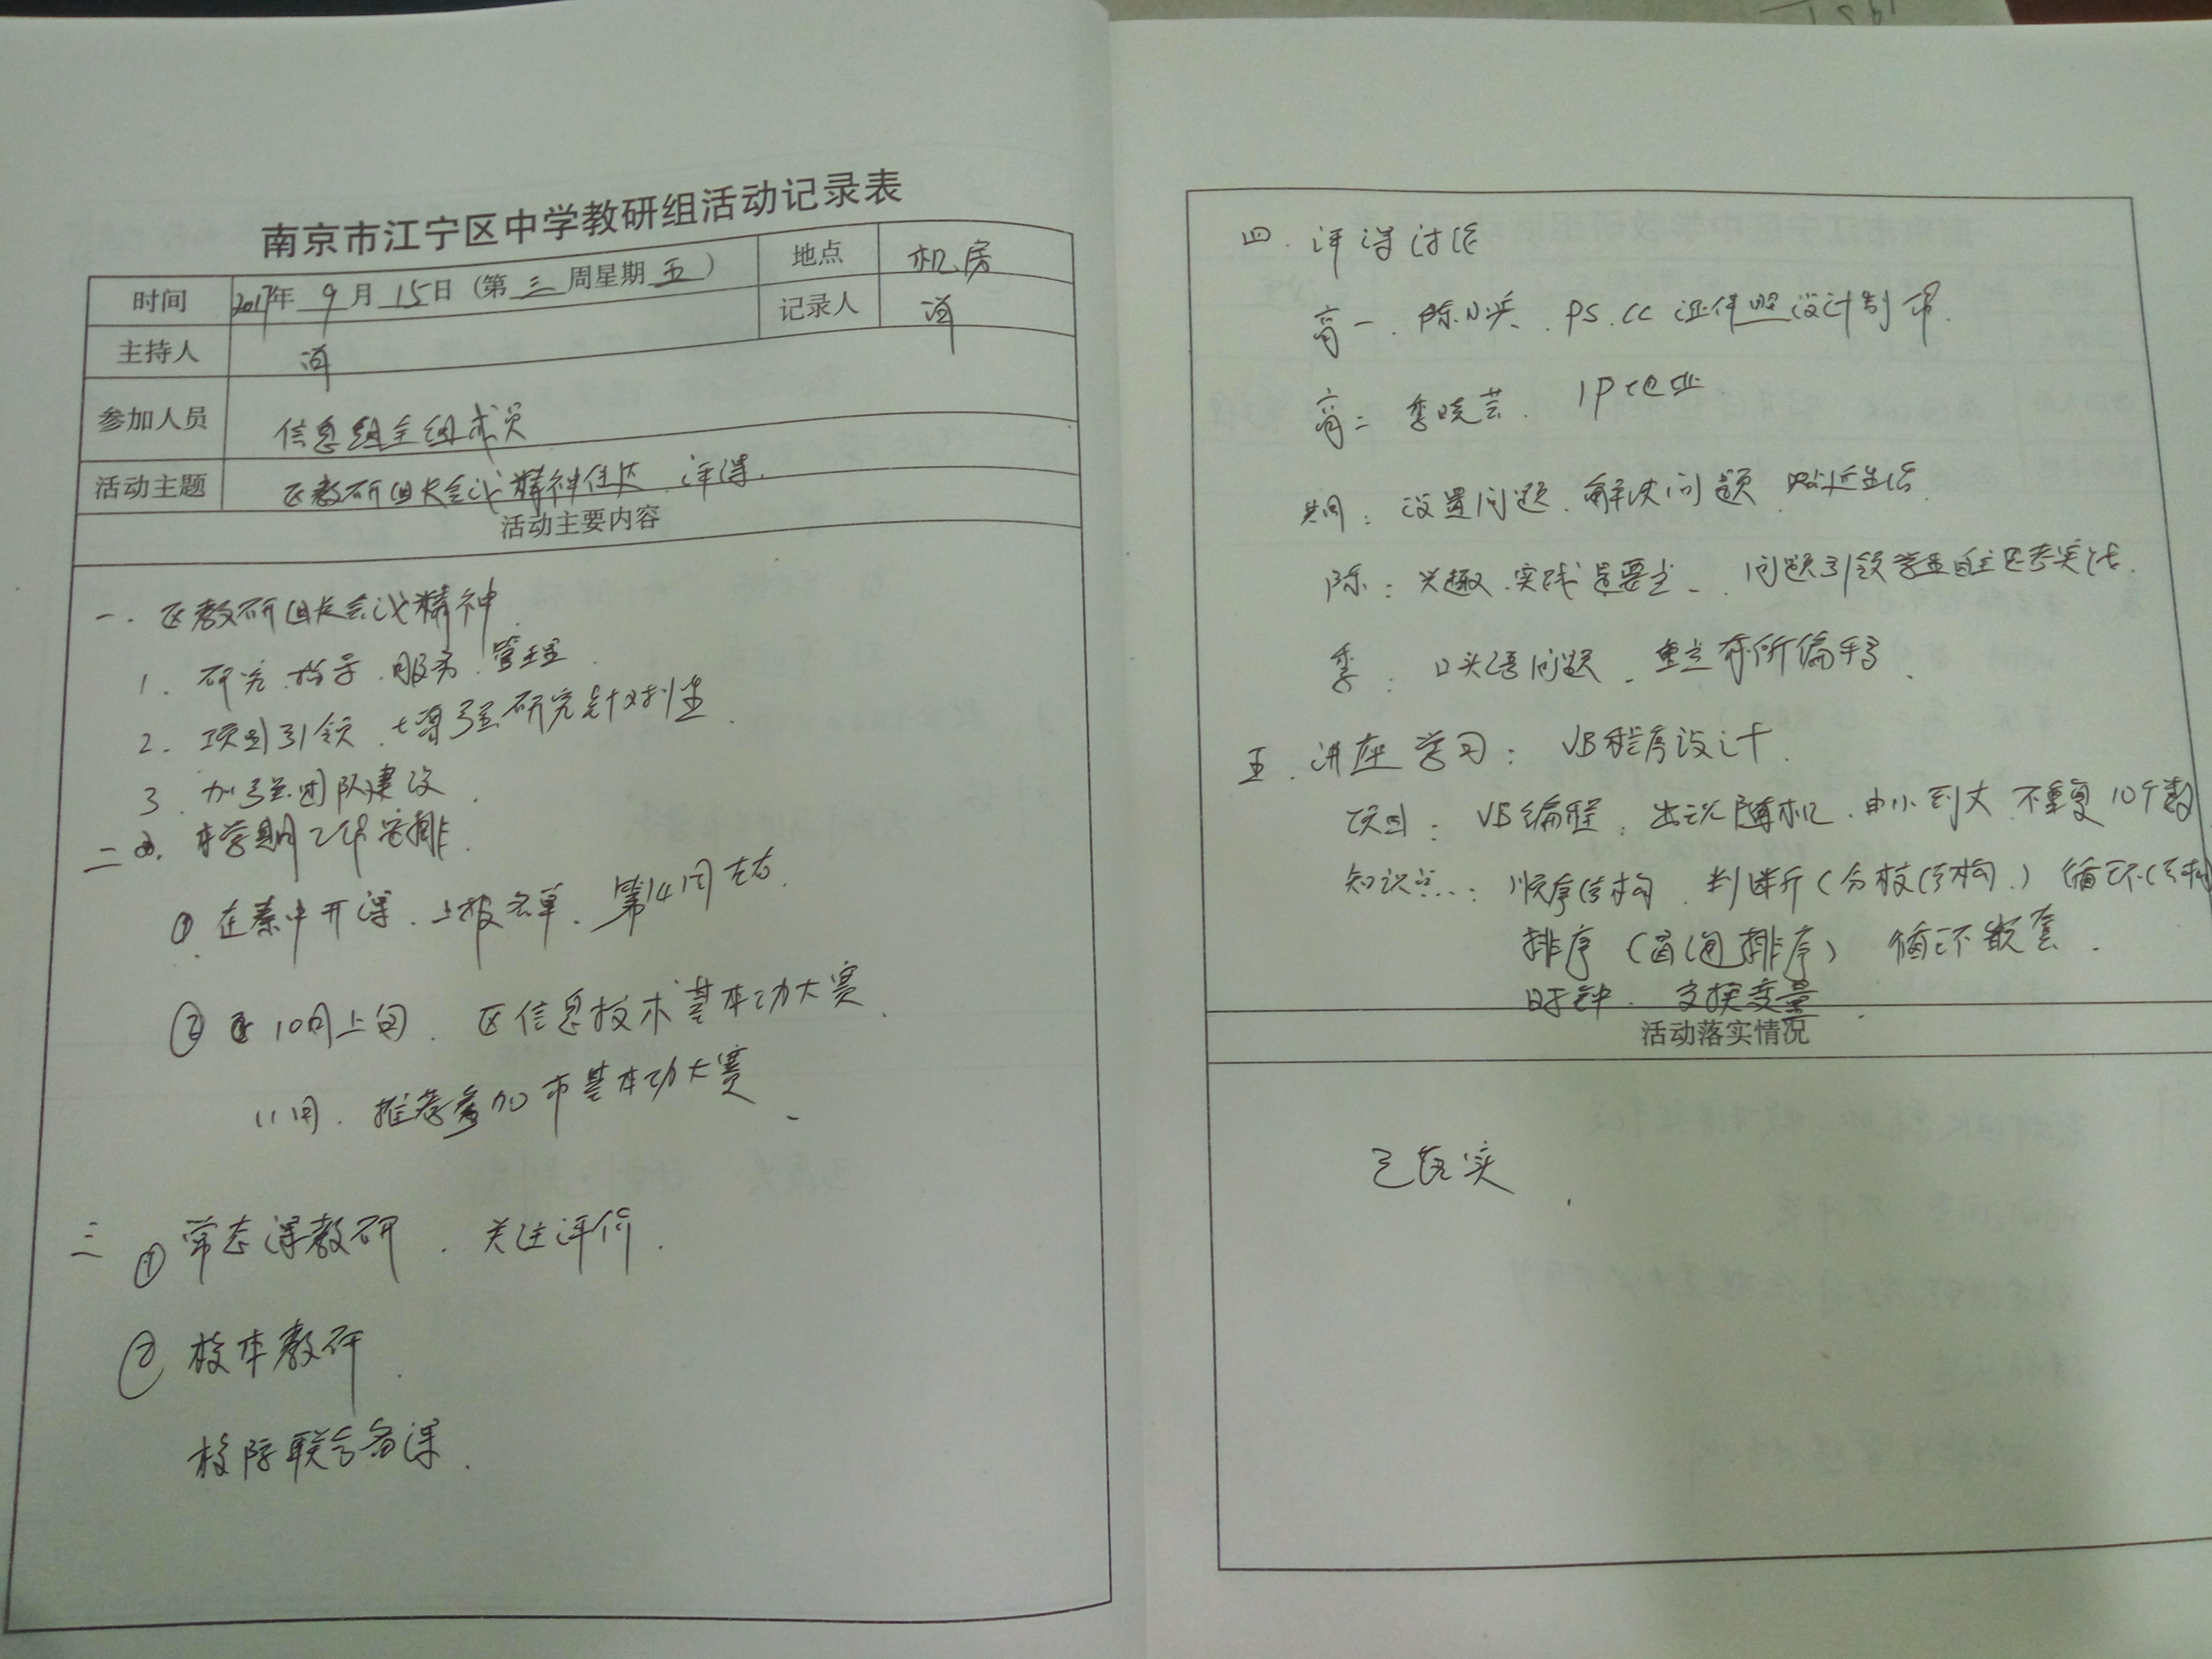 南京市江宁区中学教研组活动记录表
时间 2017年 9 月 15 日 (第 三 周星期 五 ) 地点 机房
记录人
主持人
参加人员 信息组全组成员
活动主题 区教研组长会议精神传达、评课.
活动主要内容
一. 区教研组长会议精神
1. 研究、指导、服务、管理.
2. 项目引领、增强研究针对性
3. 加强团队建设.
二 本学期工作安排.
① 在秦中开课、上报名单、第14周左右.
② 10月上旬. 区信息技术基本功大赛
11月. 推荐参加市基本功大赛
三 ① 常态课教研. 关注评价.
② 校本教研.
校际联合备课.
四. 评课讨论
高一. 陈 PS.CC 证件照设计制作.
高二 李晓芸. IP地址
共同: 设置问题、解决问题、贴近生活.
陈: 兴趣、实践 问题引领学生自主思考实践.
李: 口头语问题、重点有所偏移.
五. 讲座学习: VB程序设计.
项目: VB编程: 出现随机、由小到大 不重复10个数
知识点: 顺序结构、判断(分枝结构.) 循环结构
排序 (冒泡排序) 循环嵌套.
时钟. 交换变量.
活动落实情况
已落实.